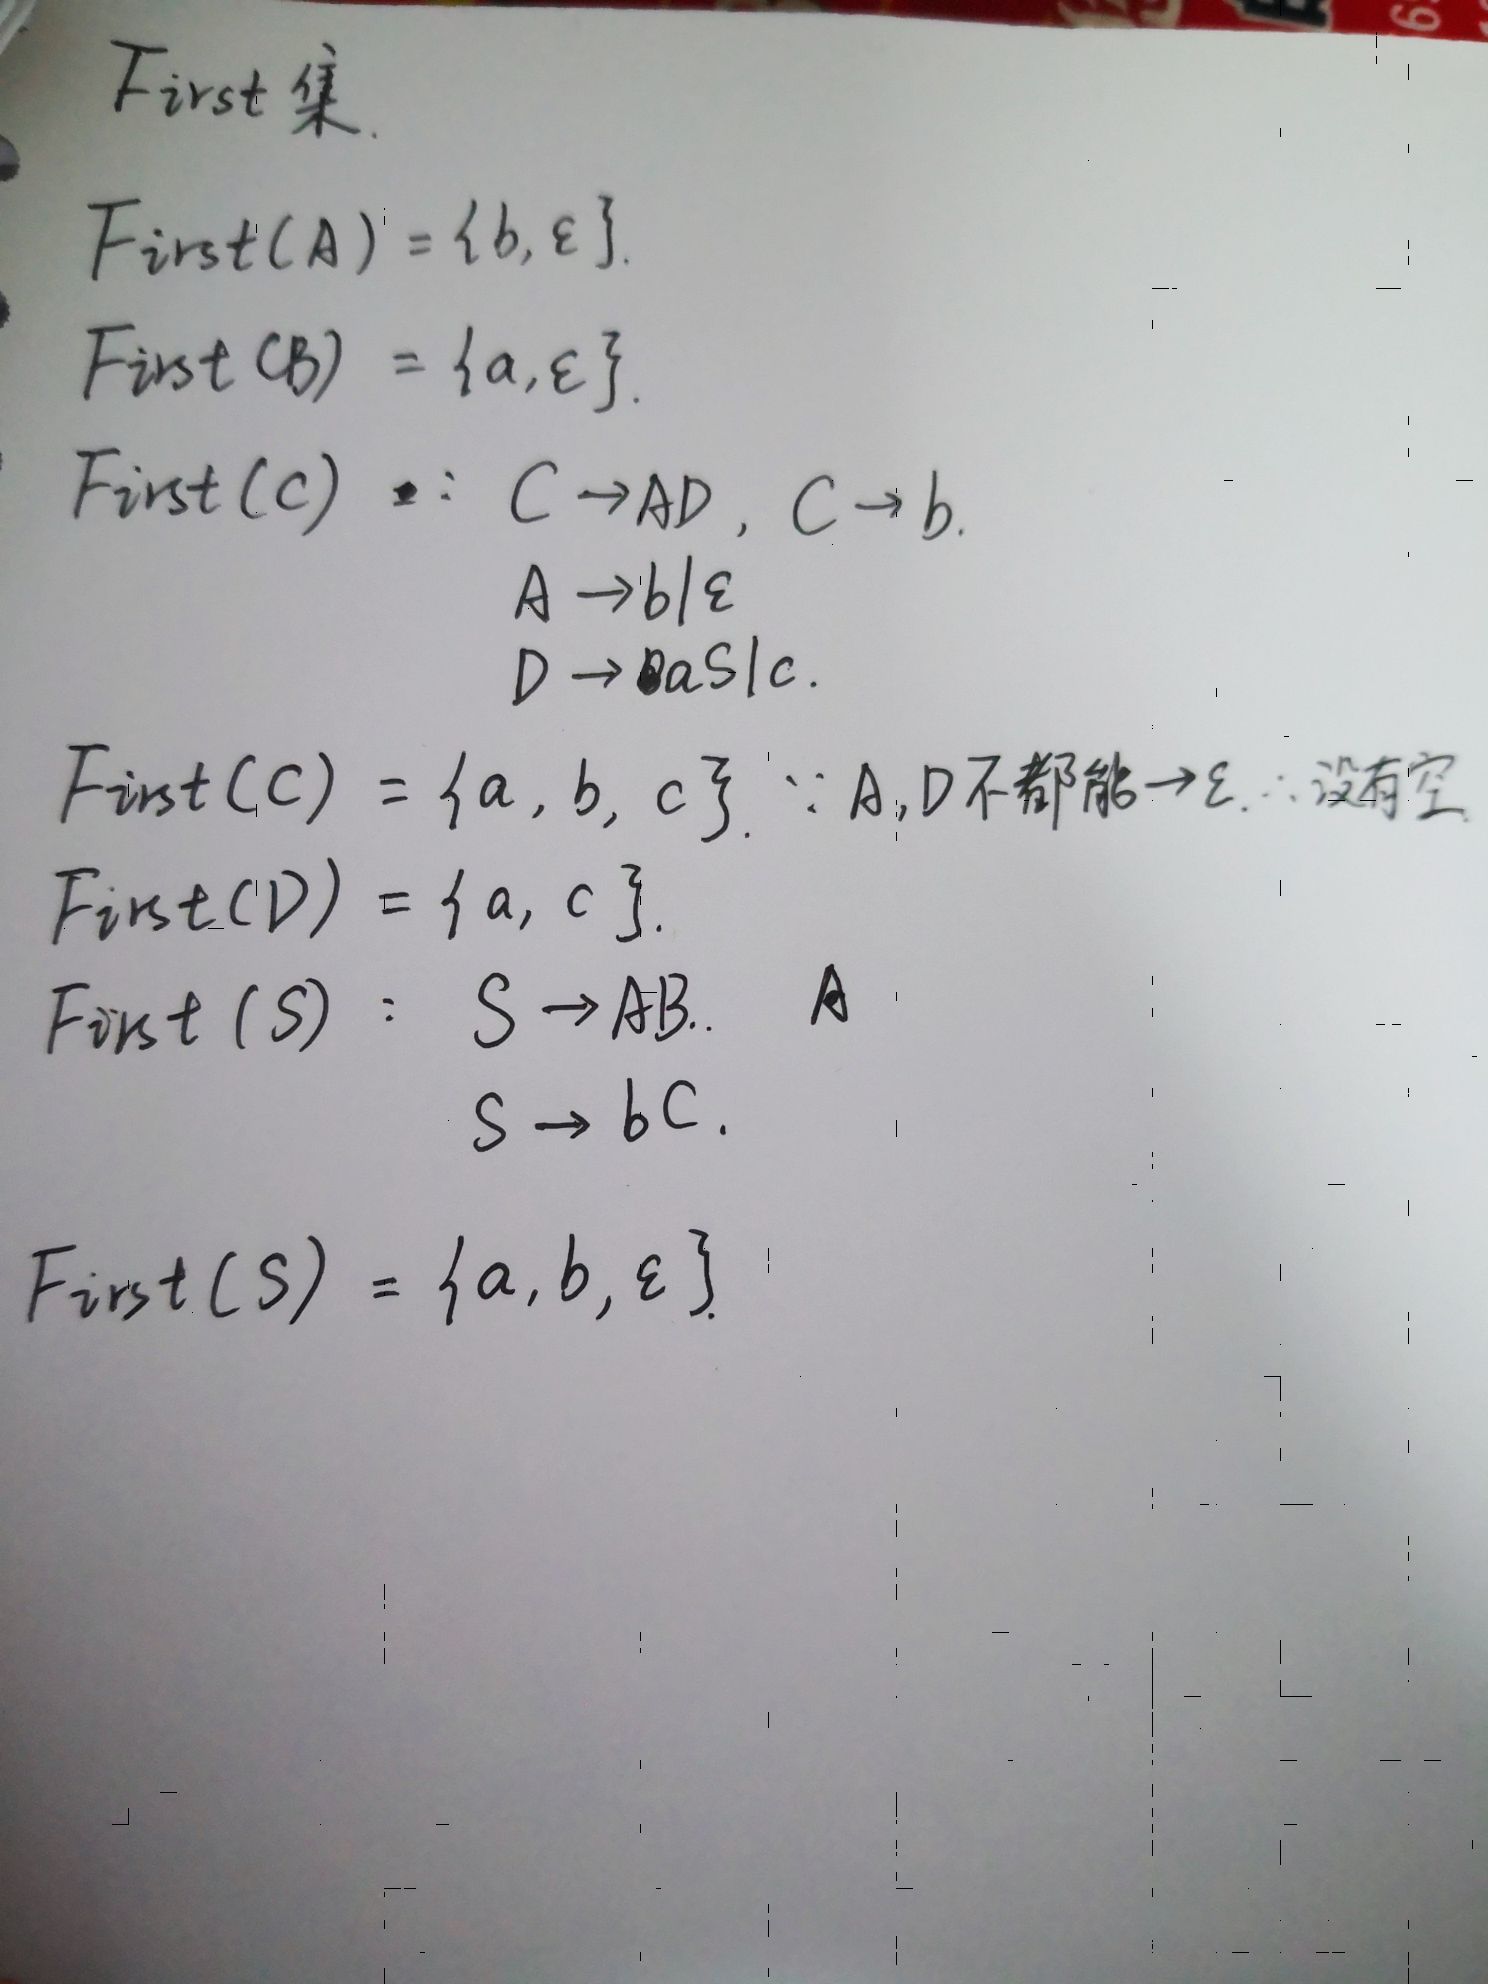 First集.
First(A) = {b, ε}.
First(B) = {a, ε}.
First(C) : C→AD, C→b.
A→b|ε
D→aS|c.
First(C) = {a, b, c}. ∵A,D不都能→ε.∴没有空.
First(D) = {a, c}.
First(S) : S→AB.. A
S→bC.
First(S) = {a, b, ε}.